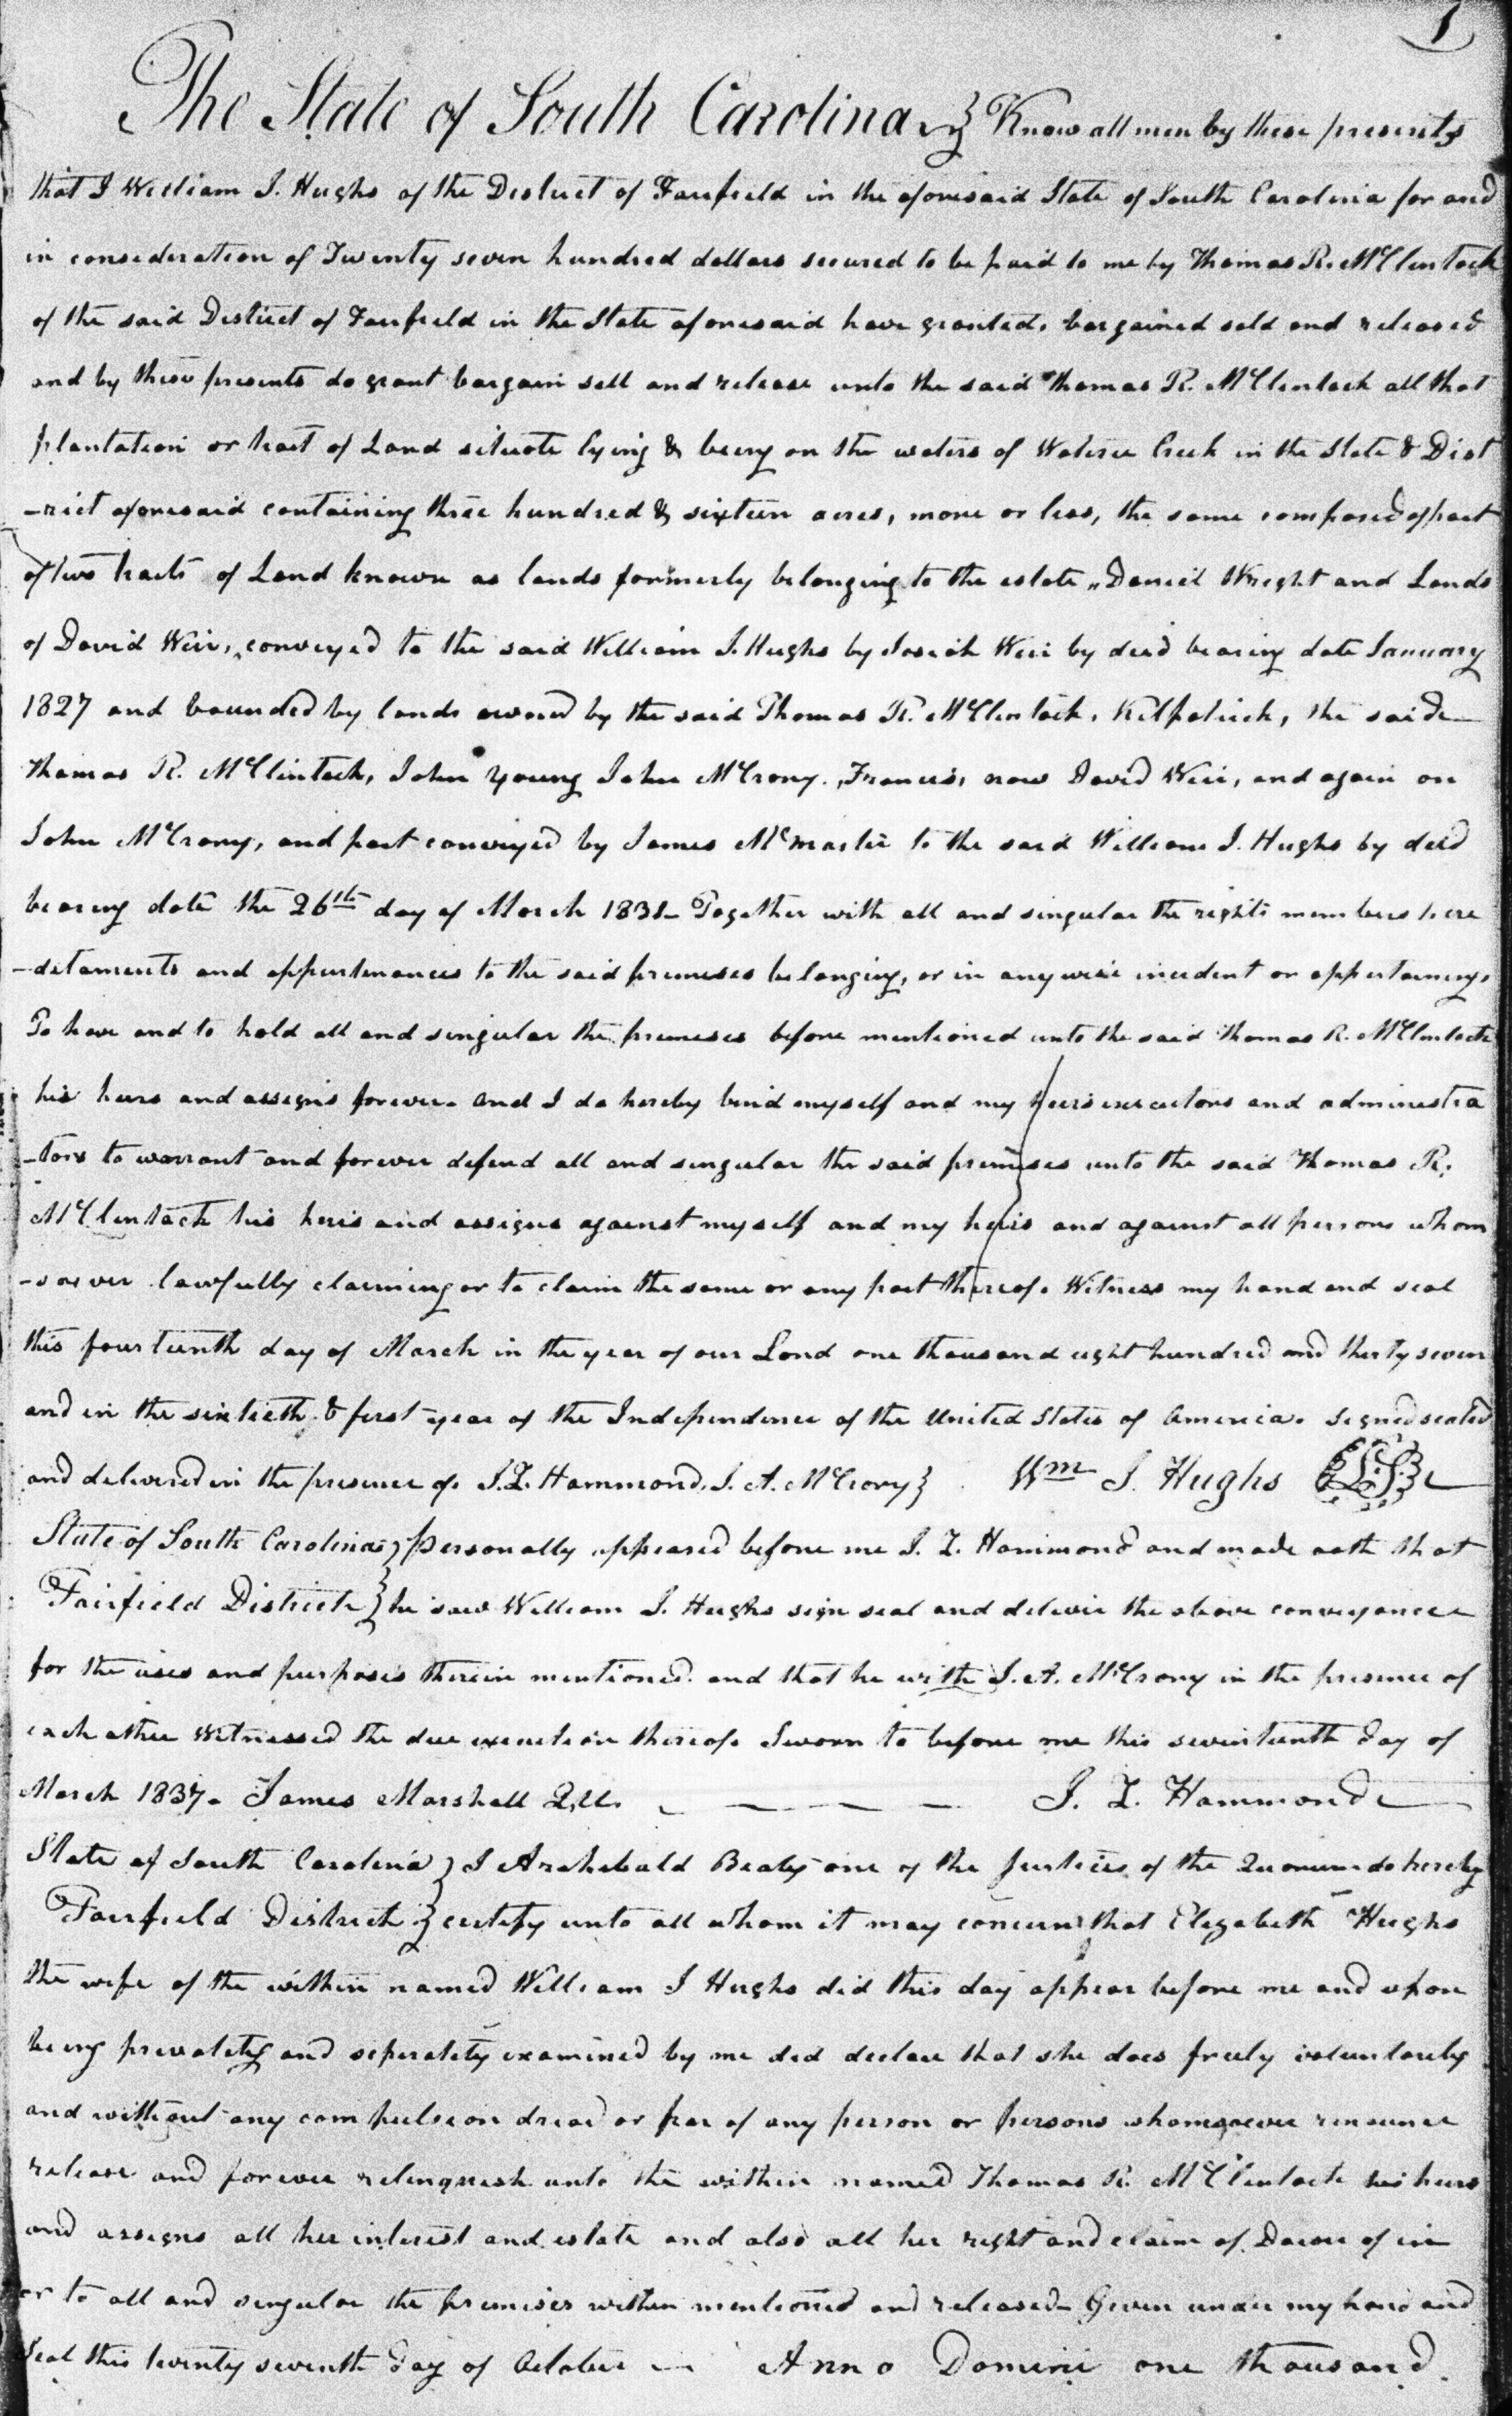 1
The State of South Carolina } Know all men by these presents
that I William J. Hughs of the District of Fairfield in the aforesaid State of South Carolina for and
in consideration of Twenty seven hundred dollars secured to be paid to me by Thomas R. McClintock
of the said District of Fairfield in the State aforesaid have granted, bargained sold and released
and by these presents do grant bargain sell and release unto the said Thomas R. McClintock all that
plantation or tract of Land situate lying & being on the waters of Wateree Creek in the State & Dist
-rict aforesaid containing three hundred & sixteen acres, more or less, the same composed of part
of two tracts of Land known as lands formerly belonging to the estate " Daniel Wright and Lands
of David Weir, conveyed to the said William J. Hughs by Josiah Weir by deed bearing date January
1827 and bounded by lands owned by the said Thomas R. McClintock, Kilpatrick, the said
Thomas R. McClintock, John Young John McCrory, Francis, now David Weir, and again on
John McCrory, and part conveyed by James McMaster to the said William J. Hughs by deed
bearing date the 26th day of March 1831 - Together with all and singular the rights members here
-ditaments and appurtenances to the said premises belonging, or in anywise incident or appertaining.
To have and to hold all and singular the premises before mentioned unto the said Thomas R. McClintock
his heirs and assigns forever. And I do hereby bind myself and my heirs executors and administra
-tors to warrant and forever defend all and singular the said premises unto the said Thomas R.
McClintock his heirs and assigns against myself and my heirs and against all persons whom
-soever lawfully claiming or to claim the same or any part thereof. Witness my hand and seal
this fourteenth day of March in the year of our Lord one thousand eight hundred and thirty seven
and in the sixtieth & first year of the Independence of the United States of America. Signed sealed
and delivered in the presence of. J. Z. Hammond, J. A. McCrory } Wm J. Hughs L.S.
State of South Carolina } Personally appeared before me J. Z. Hammond and made oath that
Fairfield District } he saw William J. Hughs sign seal and deliver the above conveyance
for the uses and purposes therein mentioned and that he with J. A. McCrory in the presence of
each other Witnessed the due execution thereof. Sworn to before me this seventeenth day of
March 1837. James Marshall Q.U. J. Z. Hammond
State of South Carolina } I Archibald Beaty one of the Justices of the Quorum do hereby
Fairfield District } certify unto all whom it may concern that Elizabeth Hughs
the wife of the within named William J Hughs did this day appear before me and upon
being privately and seperately examined by me did declare that she does freely voluntarily
and without any compulsion dread or fear of any person or persons whomsoever renounce
release and forever relinquish unto the within named Thomas R. McClintock his heirs
and assigns all her interest and estate and also all her right and claim of Dower of in
or to all and singular the premises within mentioned and released. Given under my hand and
Seal this twenty seventh day of October Anno Domini one thousand